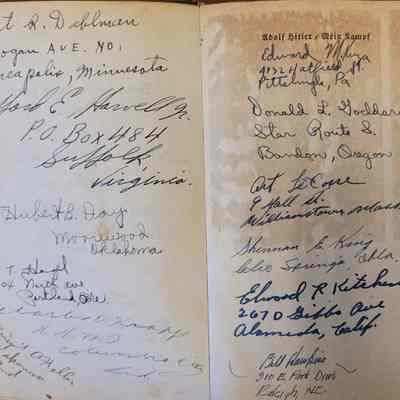 R. Dehlman
ogan AVE. NO.
neapolis, Minnesota
E. Harvell Jr.
P.O. Box 484
Suffolk,
Virginia.
Hubert B. Day
Moorewood
Oklahoma
T.
North ave
Portland, Ore.
Charles Knapp
R.
Columbia City
Ind.
Adolf Hitler / Mein Kampf
Edward
Hatfield St.
Pittsburgh, Pa
Donald L. Goddard
Star Route S.
Bandon, Oregon
Art LeCompe
9 Hall St.
Williamstown, Mass
Sherman E. King
Cleo Springs, Okla.
Elwood P. Kitchen
2670 Gibbs Ave
Alameda, Calif.
Bill Hawkins
310 E Park Drive
Raleigh, NC